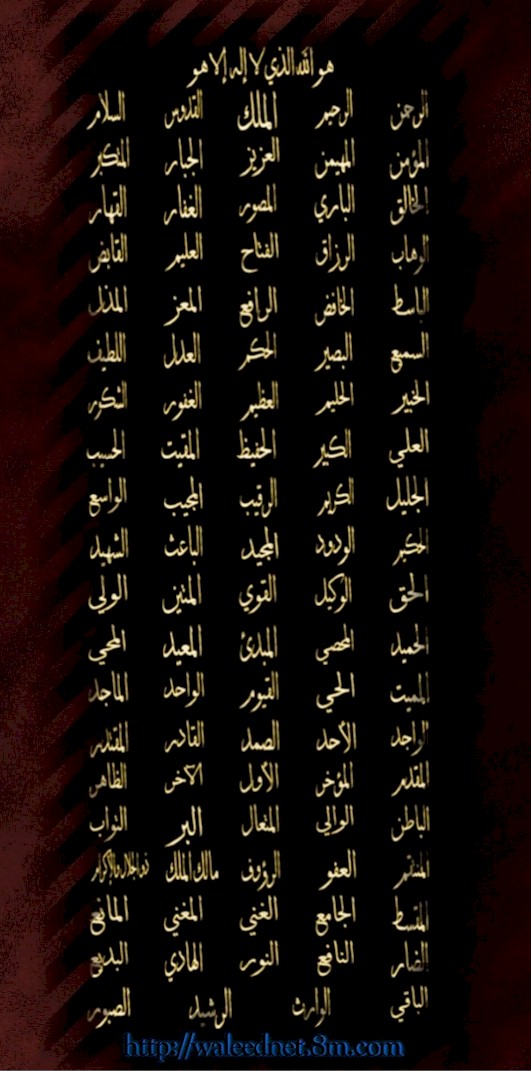 هو الله الذي لا إله إلا هو
الرحمن الرحيم الملك القدوس السلام
المؤمن المهيمن العزيز الجبار المتكبر
الخالق الباري المصور الغفار القهار
الوهاب الرزاق الفتاح العليم القابض
الباسط الخافض الرافع المعز المذل
السميع البصير الحكم العدل اللطيف
الخبير الحليم العظيم الغفور الشكور
العلي الكبير الحفيظ المقيت الحسيب
الجليل الكريم الرقيب المجيب الواسع
الحكيم الودود المجيد الباعث الشهيد
الحق الوكيل القوي المتين الولي
الحميد المحصي المبدئ المعيد المحيي
المميت الحي القيوم الواحد الماجد
الواجد الأحد الصمد القادر المقتدر
المقدم المؤخر الأول الآخر الظاهر
الباطن الوالي المتعال البر التواب
المنتقم العفو الرؤوف مالك الملك ذو الجلال والإكرام
المقسط الجامع الغني المغني المانع
الضار النافع النور الهادي البديع
الباقي الوارث الرشيد الصبور
http://waleednet.8m.com